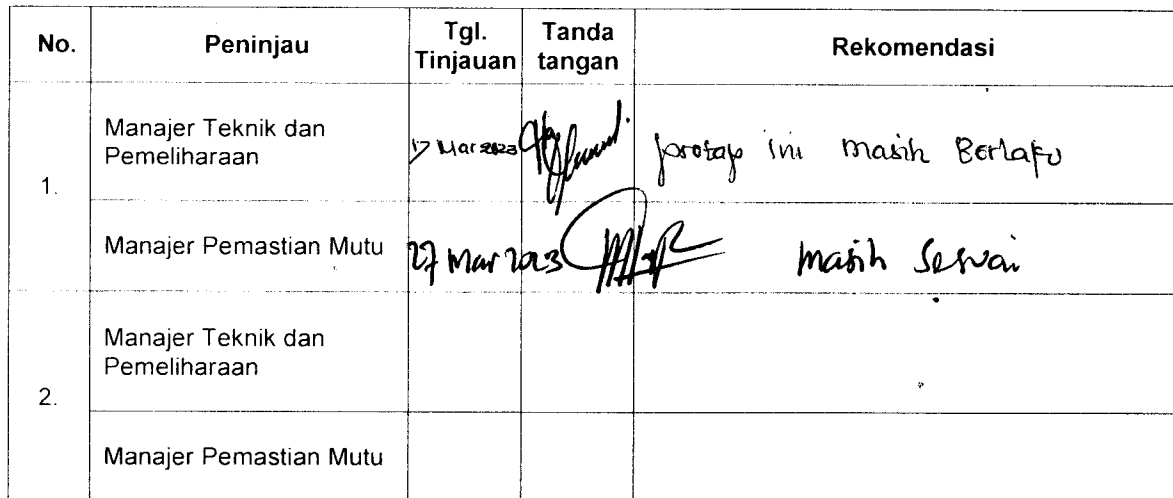 No. Peninjau Tgl. Tinjauan Tanda tangan Rekomendasi
1.
Manajer Teknik dan
Pemeliharaan
17 Mar 2023
protap ini masih Berlaku
Manajer Pemastian Mutu
27 Mar 2023
masih Sesuai
2.
Manajer Teknik dan
Pemeliharaan
Manajer Pemastian Mutu